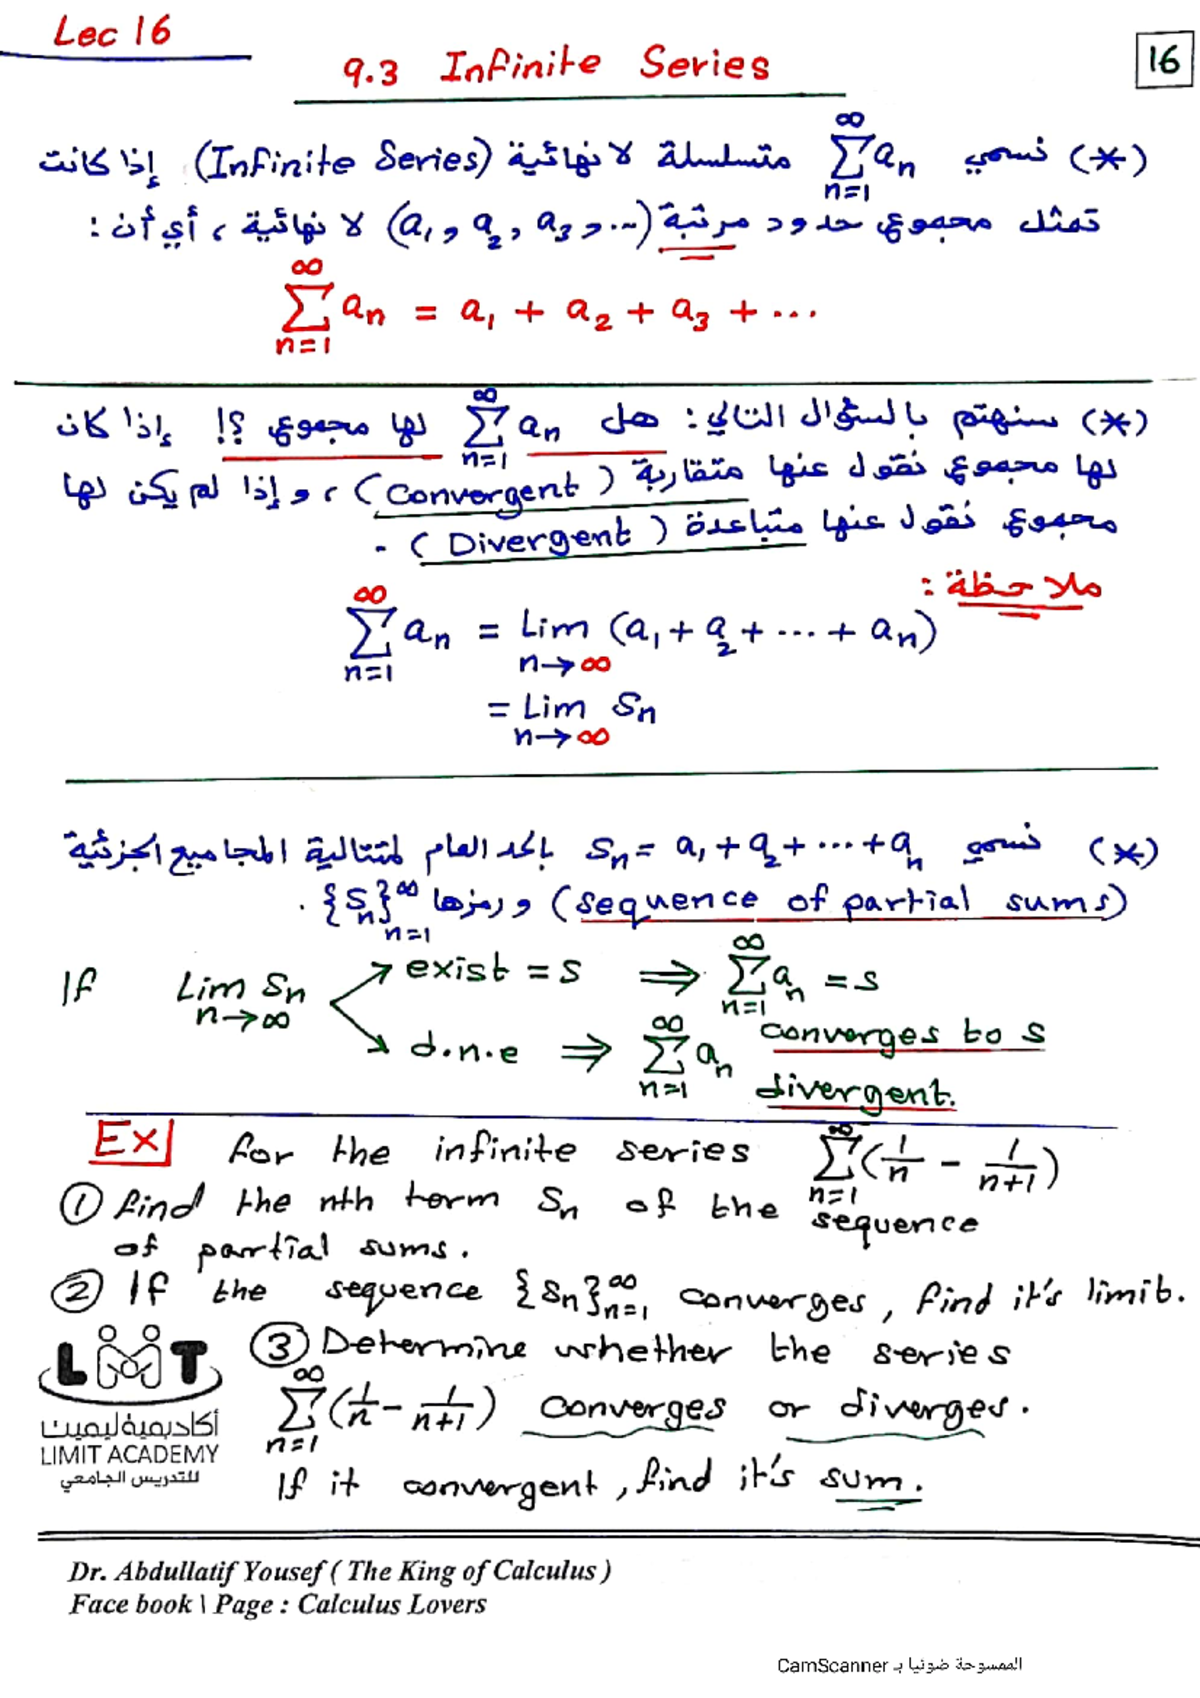 Lec 16
9.3 Infinite Series
16
(*) نسمي ∑_{n=1}^{∞} a_n متسلسلة لا نهائية (Infinite Series) إذا كانت
تمثل مجموع حدود مرتبة (a_1, a_2, a_3, ...) لا نهائية ، أي أن :
∑_{n=1}^{∞} a_n = a_1 + a_2 + a_3 + ...
(*) سنهتم بالسؤال التالي : هل ∑_{n=1}^{∞} a_n لها مجموع ؟! إذا كان
لها مجموع نقول عنها متقاربة (Convergent) ، وإذا لم يكن لها
مجموع نقول عنها متباعدة (Divergent) .
ملاحظة :
∑_{n=1}^{∞} a_n = Lim_{n→∞} (a_1 + a_2 + ... + a_n)
= Lim_{n→∞} S_n
(*) نسمي S_n = a_1 + a_2 + ... + a_n بالحد العام لمتتالية المجاميع الجزئية
(sequence of partial sums) ورمزها {S_n}_{n=1}^{∞} .
If Lim_{n→∞} S_n exist = S ⟹ ∑_{n=1}^{∞} a_n = S
converges to S
d.n.e ⟹ ∑_{n=1}^{∞} a_n divergent.
Ex for the infinite series ∑_{n=1}^{∞} (1/n - 1/(n+1))
① find the nth term S_n of the sequence
of partial sums.
② If the sequence {S_n}_{n=1}^{∞} converges, find it's limit.
③ Determine whether the series
∑_{n=1}^{∞} (1/n - 1/(n+1)) converges or diverges.
If it convergent, find it's sum.
LIMIT
أكاديمية ليميت
LIMIT ACADEMY
للتدريس الجامعي
Dr. Abdullatif Yousef ( The King of Calculus )
Face book \ Page : Calculus Lovers
الممسوحة ضوئيا بـ CamScanner